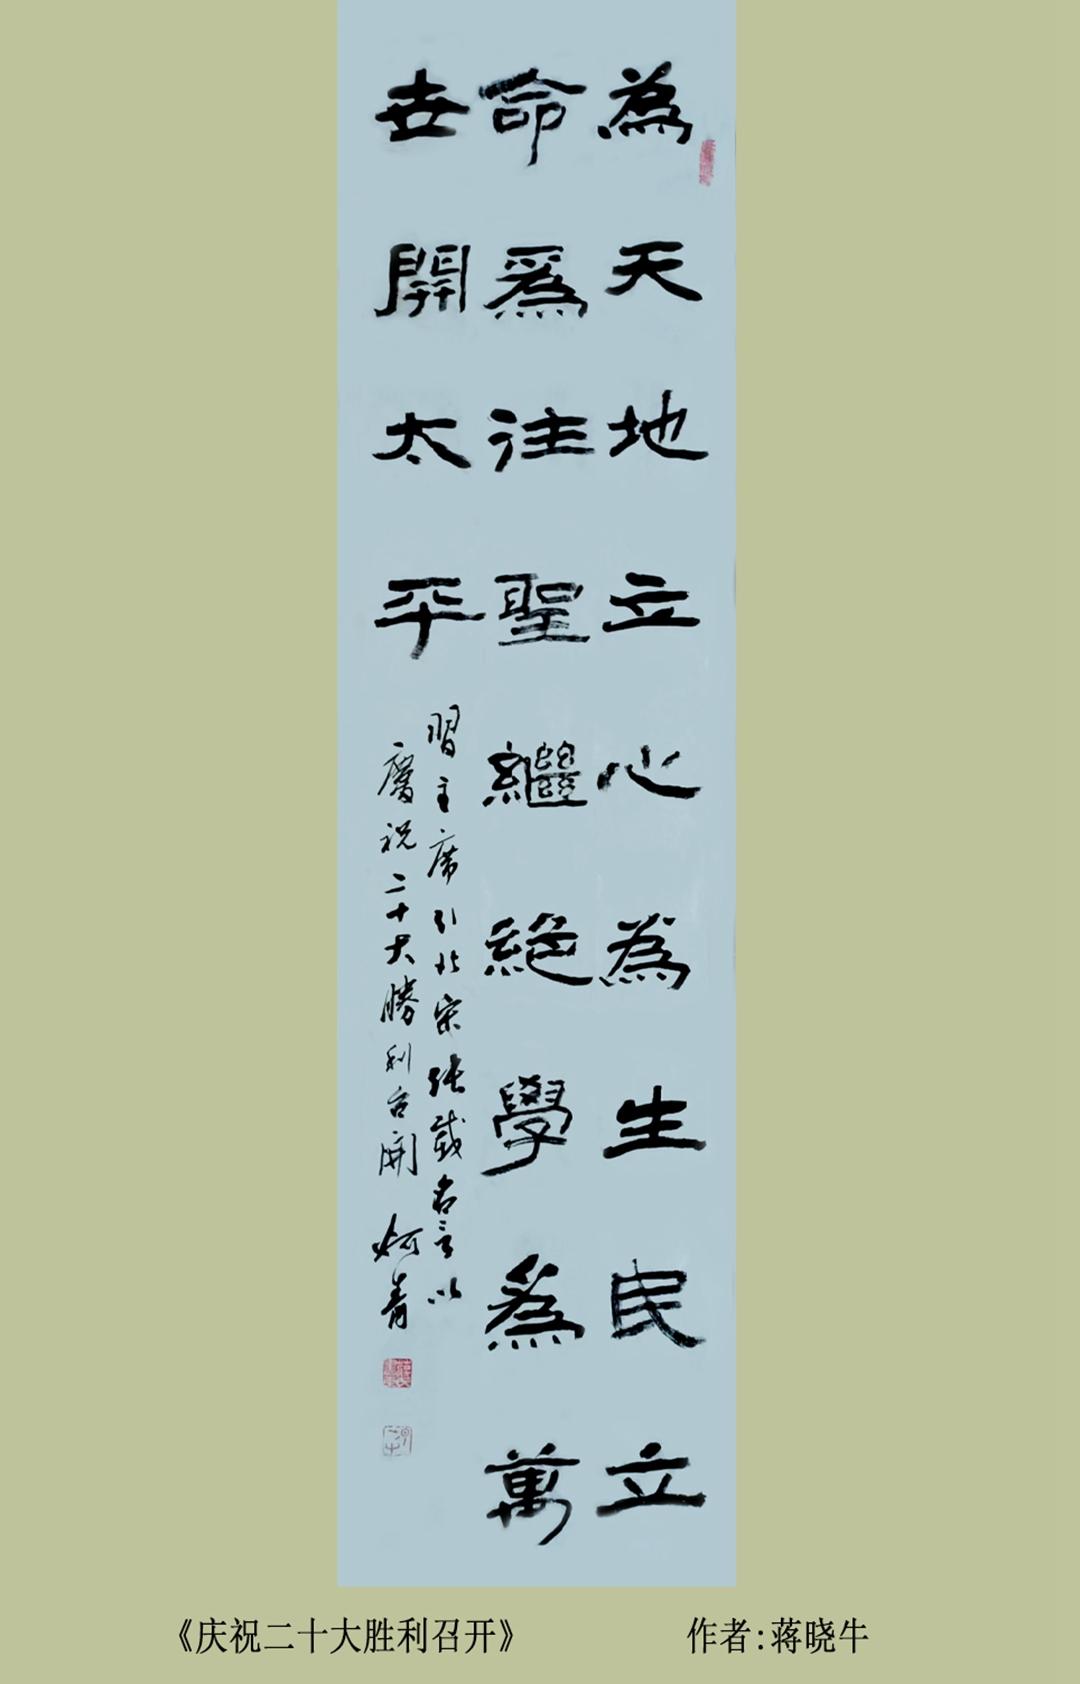 為天地立心為生民立
命爲往聖繼絕學爲萬
世開太平
習主席引於宋張載名言以
慶祝二十大勝利召開
《庆祝二十大胜利召开》
作者:蒋晓牛